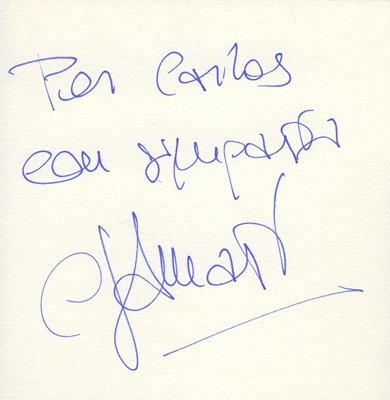 Per Carlos
con simpatia